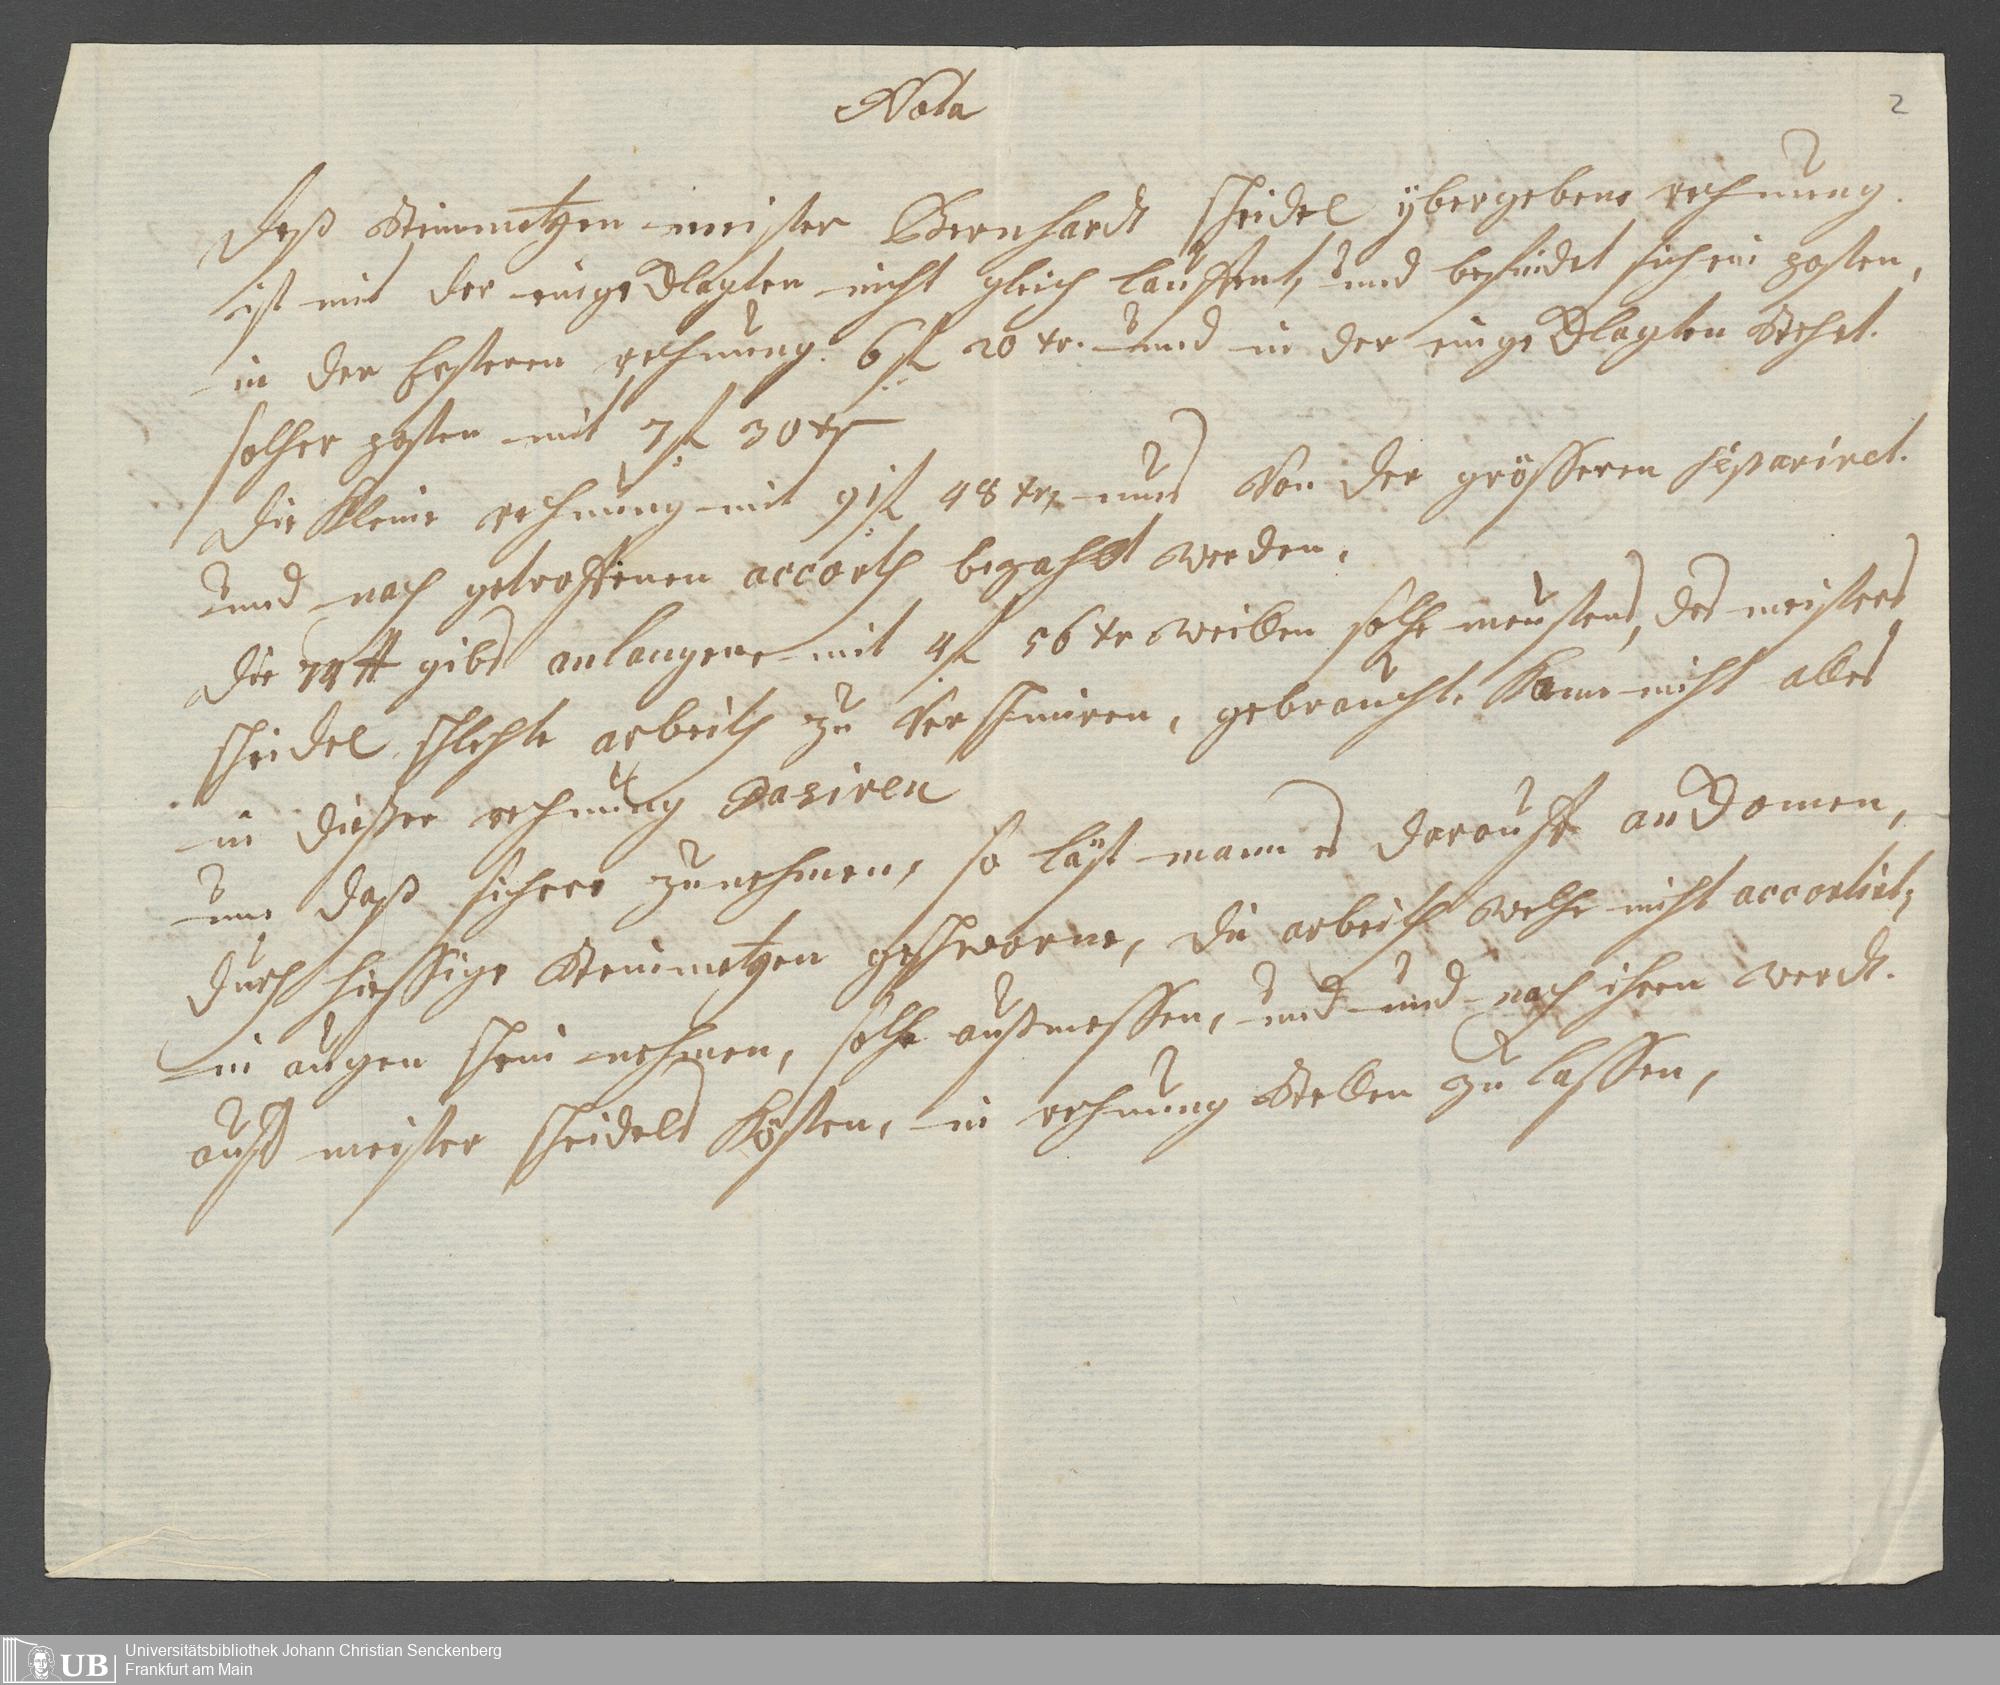 Nota
2
Deß Steinmetzen meister Bernhardt scheidel ÿbergebene rechnung.
ist mit der eingeklagten nicht gleich lauffent, und befindet sich ein posten,
in der Ersteren rechnung. 6 fl 20 xr. und in der eingeklagten Stehet.
solcher posten mit 7 fl 30 xr
Die Kleine rechnung mit 91 fl 48 xr, mus Von der grösseren separiret.
und nach getroffenen accorth bezahlt werden.
Die 74 ℔ gibs anlangene mit 4 fl 56 xr weillen solche meistens, des meisters
scheidel schlechte arbeith zu Verschmiren, gebraucht. Kann nicht alles
in dießer rechnung Pasiren
um daß sichere zu nehmen, so läst mann es darauff an Komen,
durch hiessige Steinmetzen geschworne, die arbeith welche nicht accortirt,
in augen schein nehmen, solche außmessen, und und nach ihren werdt.
auff meister scheidels Kösten, in rechnung Stellen zu lassen,
UB
Universitätsbibliothek Johann Christian Senckenberg
Frankfurt am Main